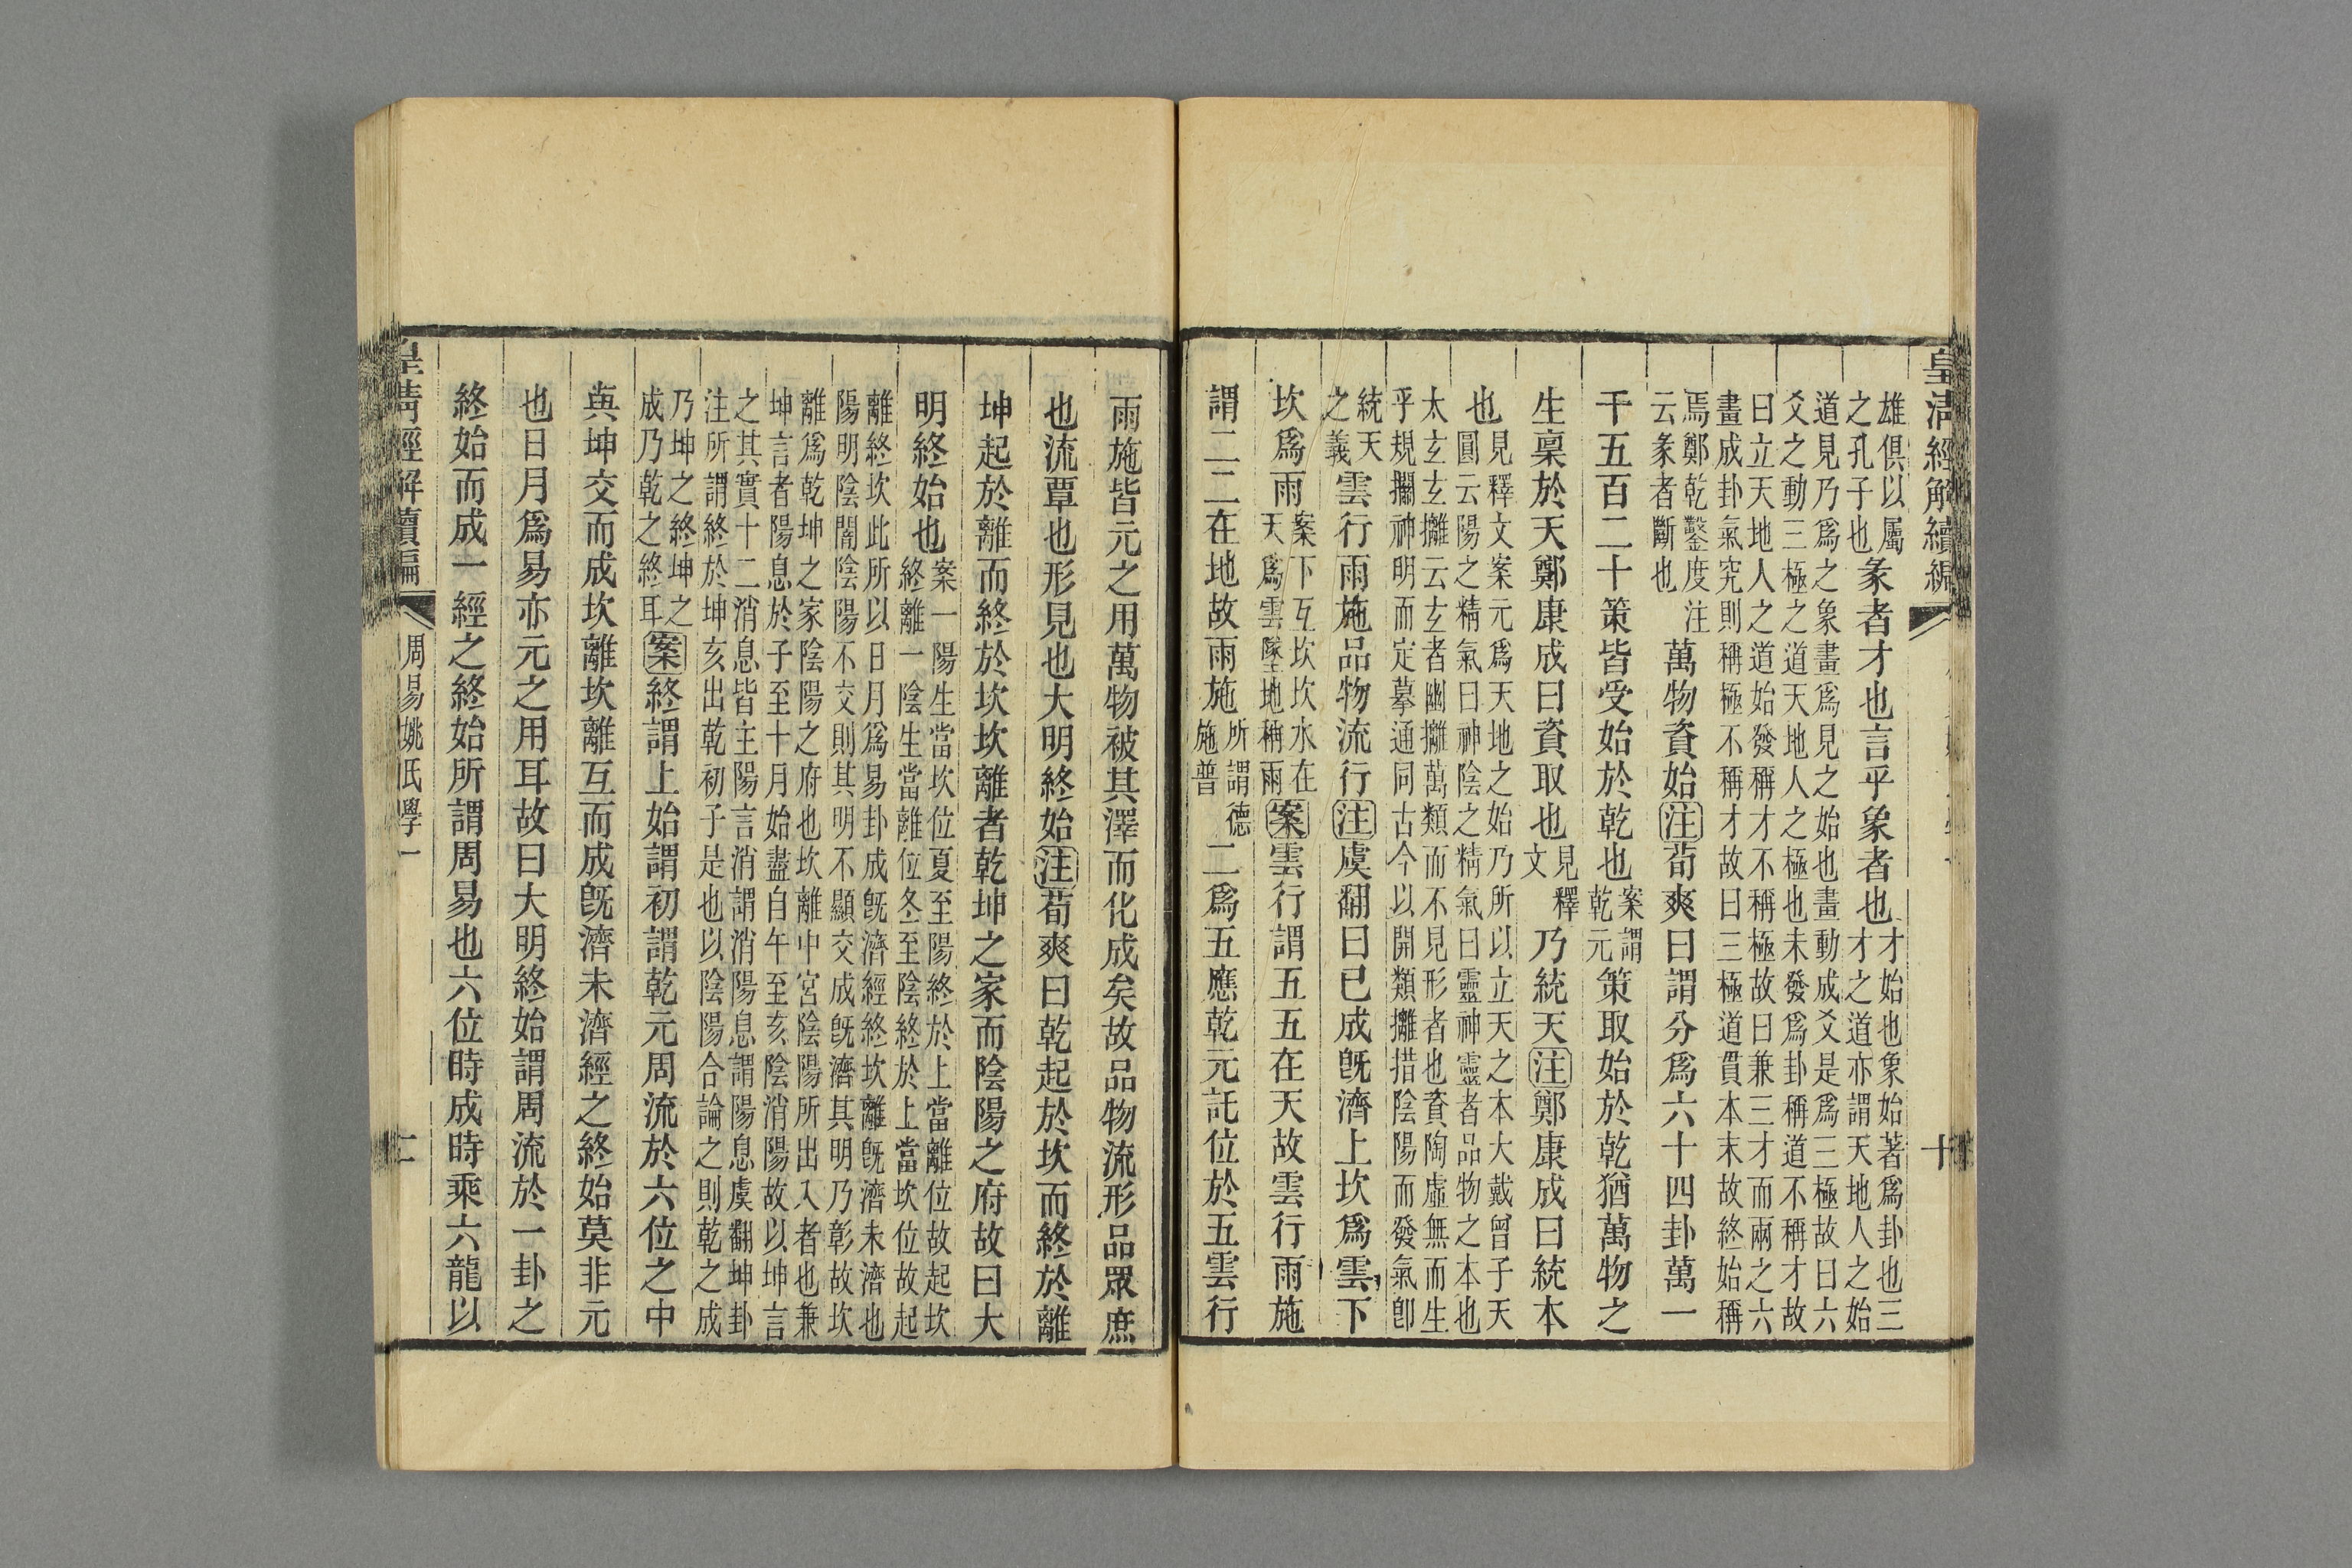 皇清經解續編
十
雄俱以屬
之孔子也
彖者才也言乎象者也
才始也象始著爲卦也三
才之道亦謂天地人之始
道見乃爲之象畫爲見之始也畫動成爻是爲三極故曰六
爻之動三極之道天地人之極也未發爲卦稱道不稱才故
曰立天地人之道始發稱才不稱極故曰兼三才而兩之六
畫成卦氣究則稱極不稱才故曰三極道貫本末故終始稱
焉鄭乾鑿度注
云彖者斷也
萬物資始注荀爽曰謂分爲六十四卦萬一
千五百二十策皆受始於乾也
案謂
乾元
策取始於乾猶萬物之
生稟於天鄭康成曰資取也
見釋
文
乃統天注鄭康成曰統本
也
見釋文案元爲天地之始乃所以立天之本大戴曾子天
圓云陽之精氣曰神陰之精氣曰靈神靈者品物之本也
太玄玄攡云玄者幽攡萬類而不見形者也資陶虛無而生
乎規攔神明而定摹通同古今以開類攡措陰陽而發氣卽
統天
之義
雲行雨施品物流行注虞翻曰已成旣濟上坎爲雲下
坎爲雨
案下互坎坎水在
天爲雲墜地稱雨
案雲行謂五五在天故雲行雨施
謂二二在地故雨施
所謂德
施普
二爲五應乾元託位於五雲行
雨施皆元之用萬物被其澤而化成矣故品物流形品眾庶
也流覃也形見也大明終始注荀爽曰乾起於坎而終於離
坤起於離而終於坎坎離者乾坤之家而陰陽之府故曰大
明終始也
案一陽生當坎位夏至陽終於上當離位故起坎
終離一陰生當離位冬至陰終於上當坎位故起
離終坎此所以日月爲易卦成旣濟經終坎離旣濟未濟也
陽明陰闇陰陽不交則其明不顯交成旣濟其明乃彰故坎
離爲乾坤之家陰陽之府也坎離中宮陰陽所出入者也兼
坤言者陽息於子至十月始盡自午至亥陰消陽故以坤言
之其實十二消息皆主陽言消謂消陽息謂陽息虞翻坤卦
注所謂終於坤亥出乾初子是也以陰陽合論之則乾之成
乃坤之終坤之
成乃乾之終耳
案終謂上始謂初謂乾元周流於六位之中
與坤交而成坎離坎離互而成旣濟未濟經之終始莫非元
也日月爲易亦元之用耳故曰大明終始謂周流於一卦之
終始而成一經之終始所謂周易也六位時成時乘六龍以
皇清經解續編
周易姚氏學一